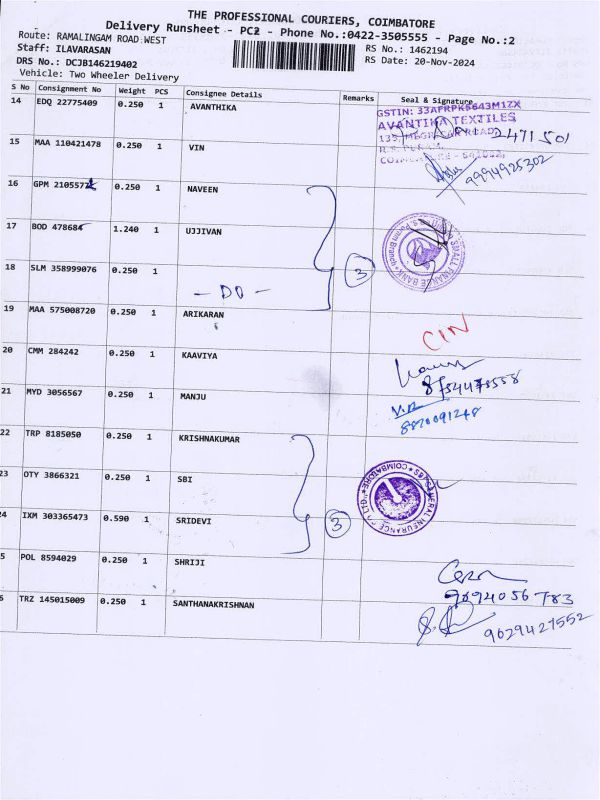 THE PROFESSIONAL COURIERS, COIMBATORE
Delivery Runsheet - PC2 - Phone No.:0422-3505555 - Page No.:2
Route: RAMALINGAM ROAD WEST
RS No.: 1462194
Staff: ILAVARASAN
RS Date: 20-Nov-2024
DRS No.: DCJB146219402
Vehicle: Two Wheeler Delivery
S No Consignment No Weight PCS Consignee Details Remarks Seal & Signature
14 EDQ 22775409 0.250 1 AVANTHIKA
GSTIN: 33AFRPK5643M1ZX
AVANTIKA TEXTILES
15 MAA 110421478 0.250 1 VIN
9994925302
16 GPM 2105577 0.250 1 NAVEEN
17 BOD 478684 1.240 1 UJJIVAN
SMALL FINANCE BANK
18 SLM 358999076 0.250 1
- DO -
3
19 MAA 575008720 0.250 1 ARIKARAN
CIN
20 CMM 284242 0.250 1 KAAVIYA
21 MYD 3056567 0.250 1 MANJU
8870091248
22 TRP 8185050 0.250 1 KRISHNAKUMAR
23 OTY 3866321 0.250 1 SBI
SBI GENERAL INSURANCE
COIMBATORE
24 IXM 303365473 0.590 1 SRIDEVI
3
5 POL 8594029 0.250 1 SHRIJI
9894056783
6 TRZ 145015009 0.250 1 SANTHANAKRISHNAN
9629427552